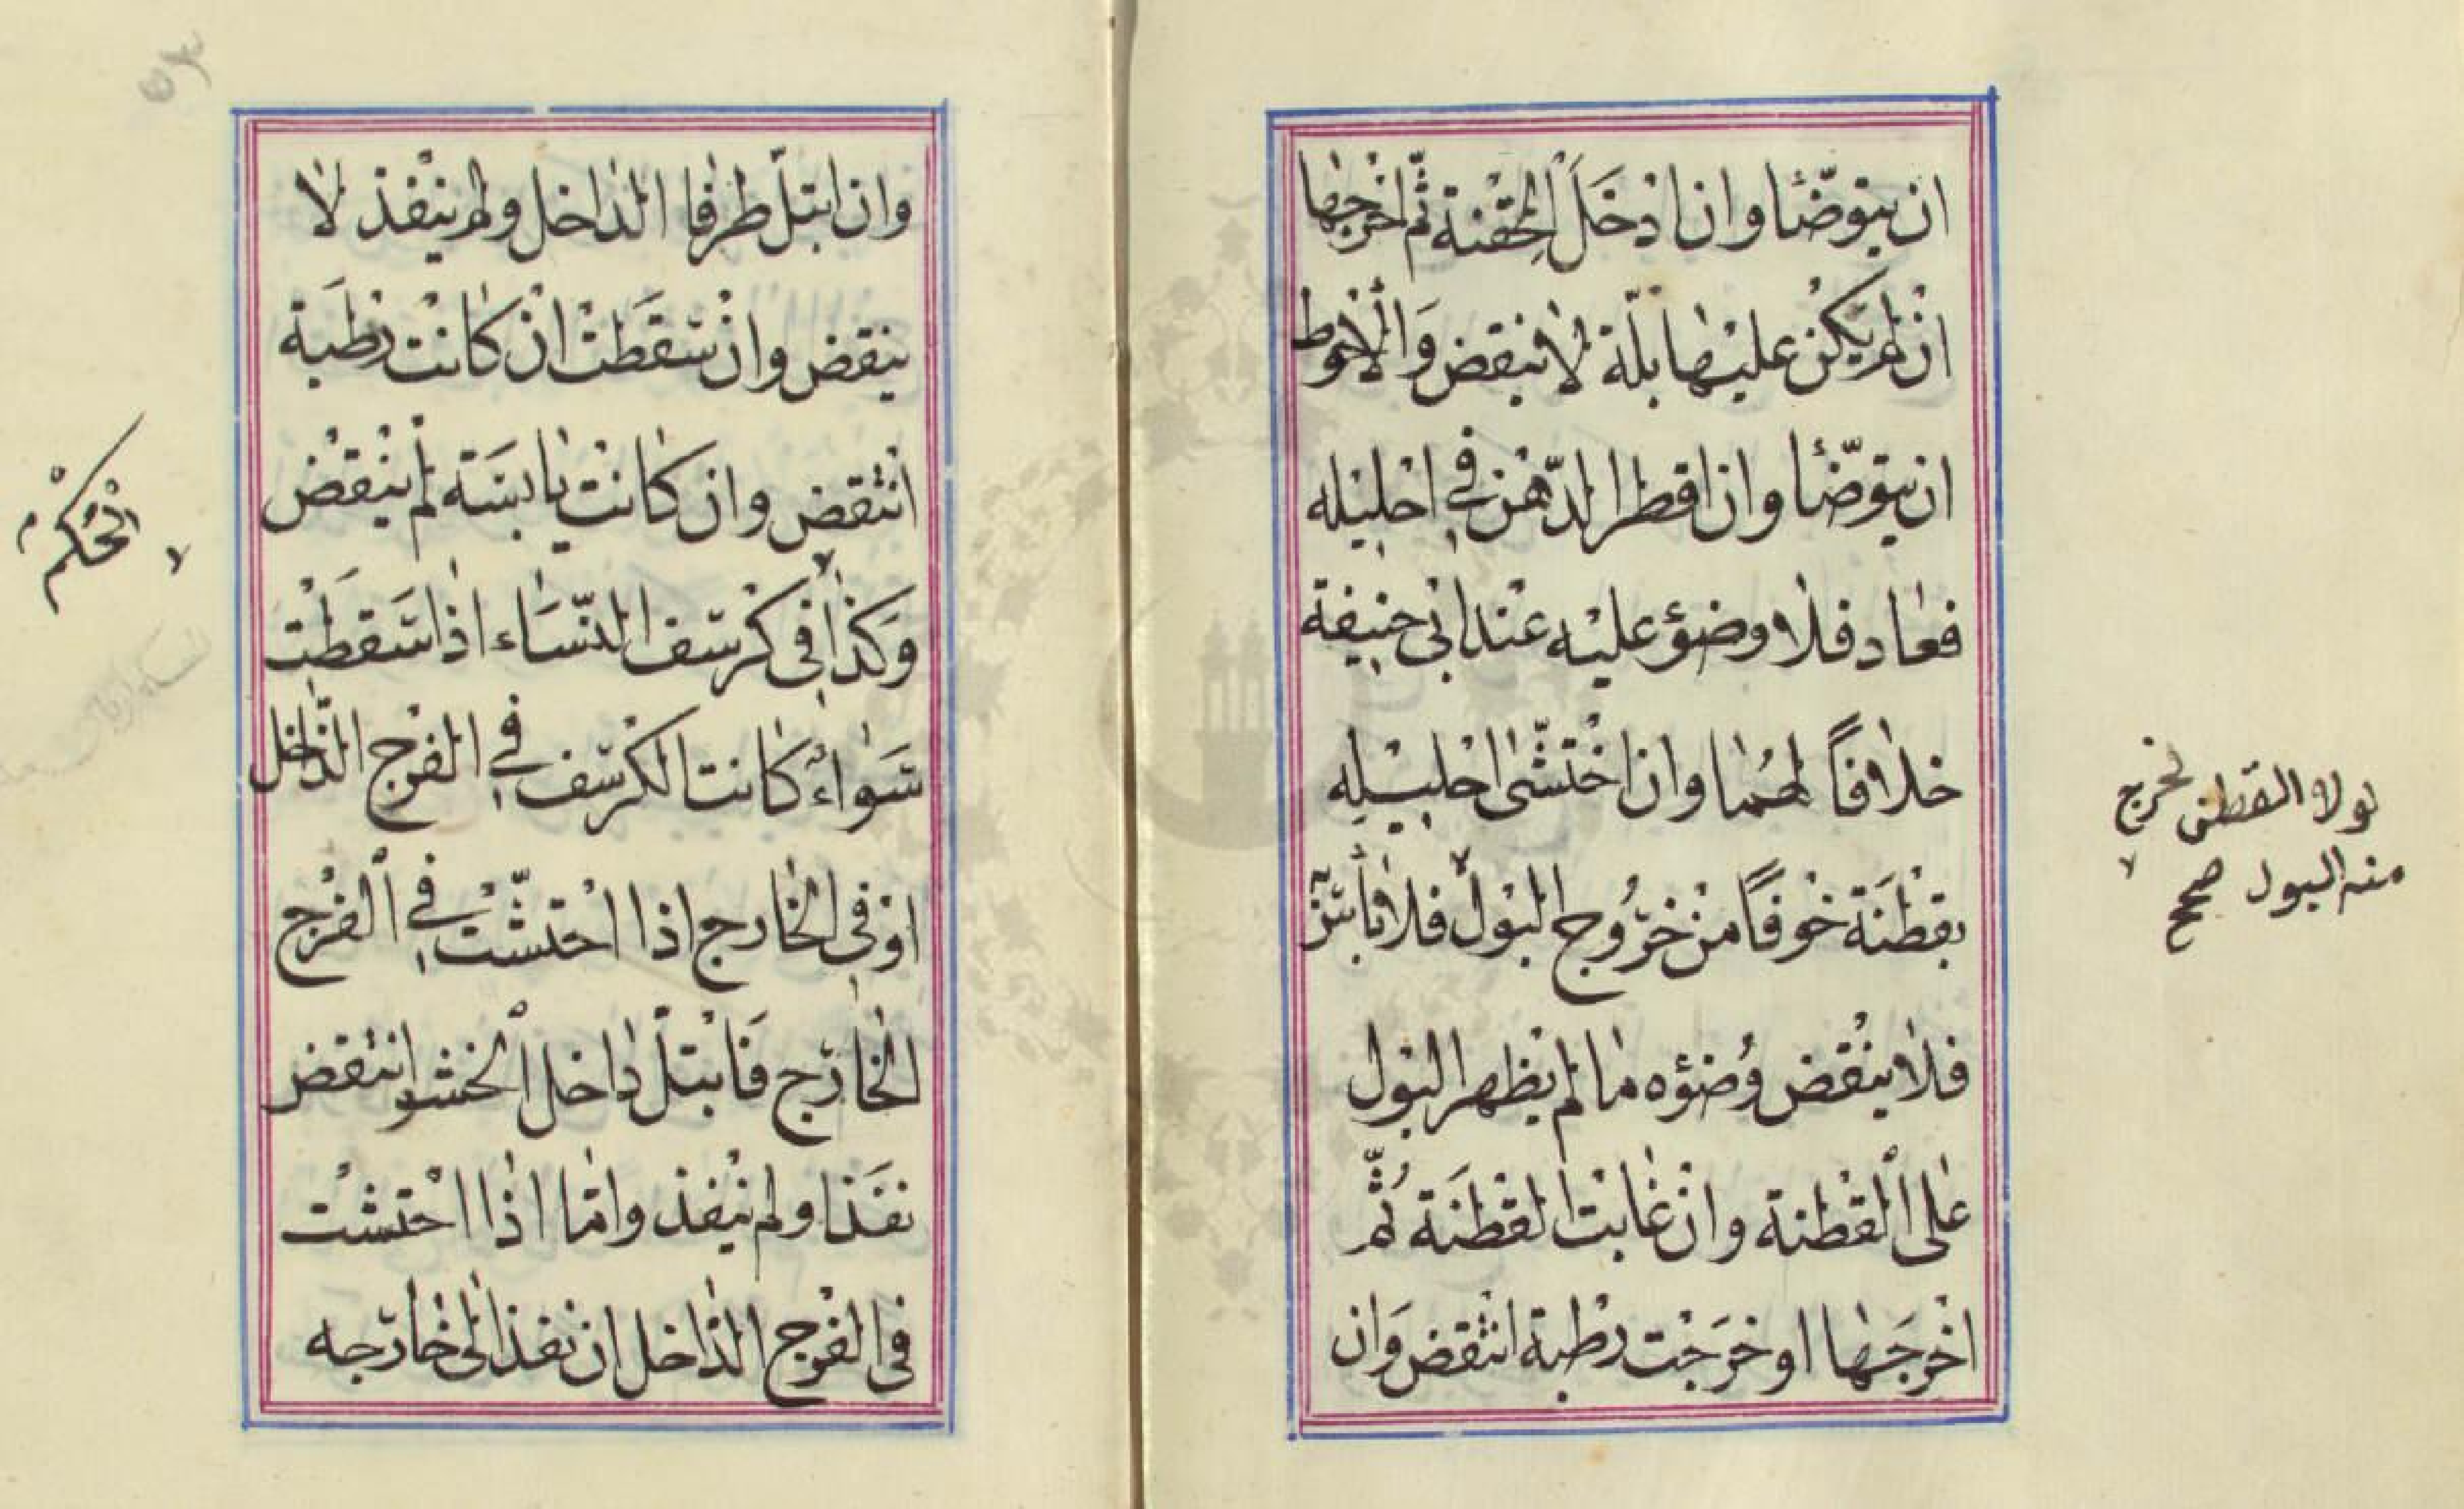 ان يتوضّئا وان ادخَلَ الحقنة ثمّ اخرجها
انْ لم يَكنْ عليْها بلّة لا ينقض وَالْاحوط
ان يتوضّئا وان اقطر الدّهْن في احْليْله
فعاد فلا وضؤ عليْه عنْد ابى حنيفة
خلافاً لهُما وان احْتشّى احْليْلِه
بقطْنَة خوْفاً منْ خرُوج البَوْل فلا بأسَ
فلا ينْقض وُضؤه ما لم يظْهر البَول
على الْقطْنة وانْ غابت القطْنَة ثُمّ
اخْرجَها او خرَجَت رطْبة انْتقض وَان
لولا القطن لخرج
منه البول صحح
وان ابتلّ طرفا الداخل ولم ينْفذ لا
ينقض وانْ سَقَطتْ انْ كانَتْ رَطبَة
انْتقض وان كانت يابسَة لم ينْقضْ
وَكذا في كرْسَف النّسَاء اذا سَقَطَتْ
سَواءٌ كانت الكرْسَف في الفرْج الدّاخل
اوْ في الخارج اذا احْتشّتْ في الْفرْج
الخارج فَابْتلّ داخل الْحشْو انتقض
نفَذ اولم ينْفذ وامّا اذا احْتشَتْ
فى الفرْج الدّاخل ان نفذ الى خارجه
الحُكمْ